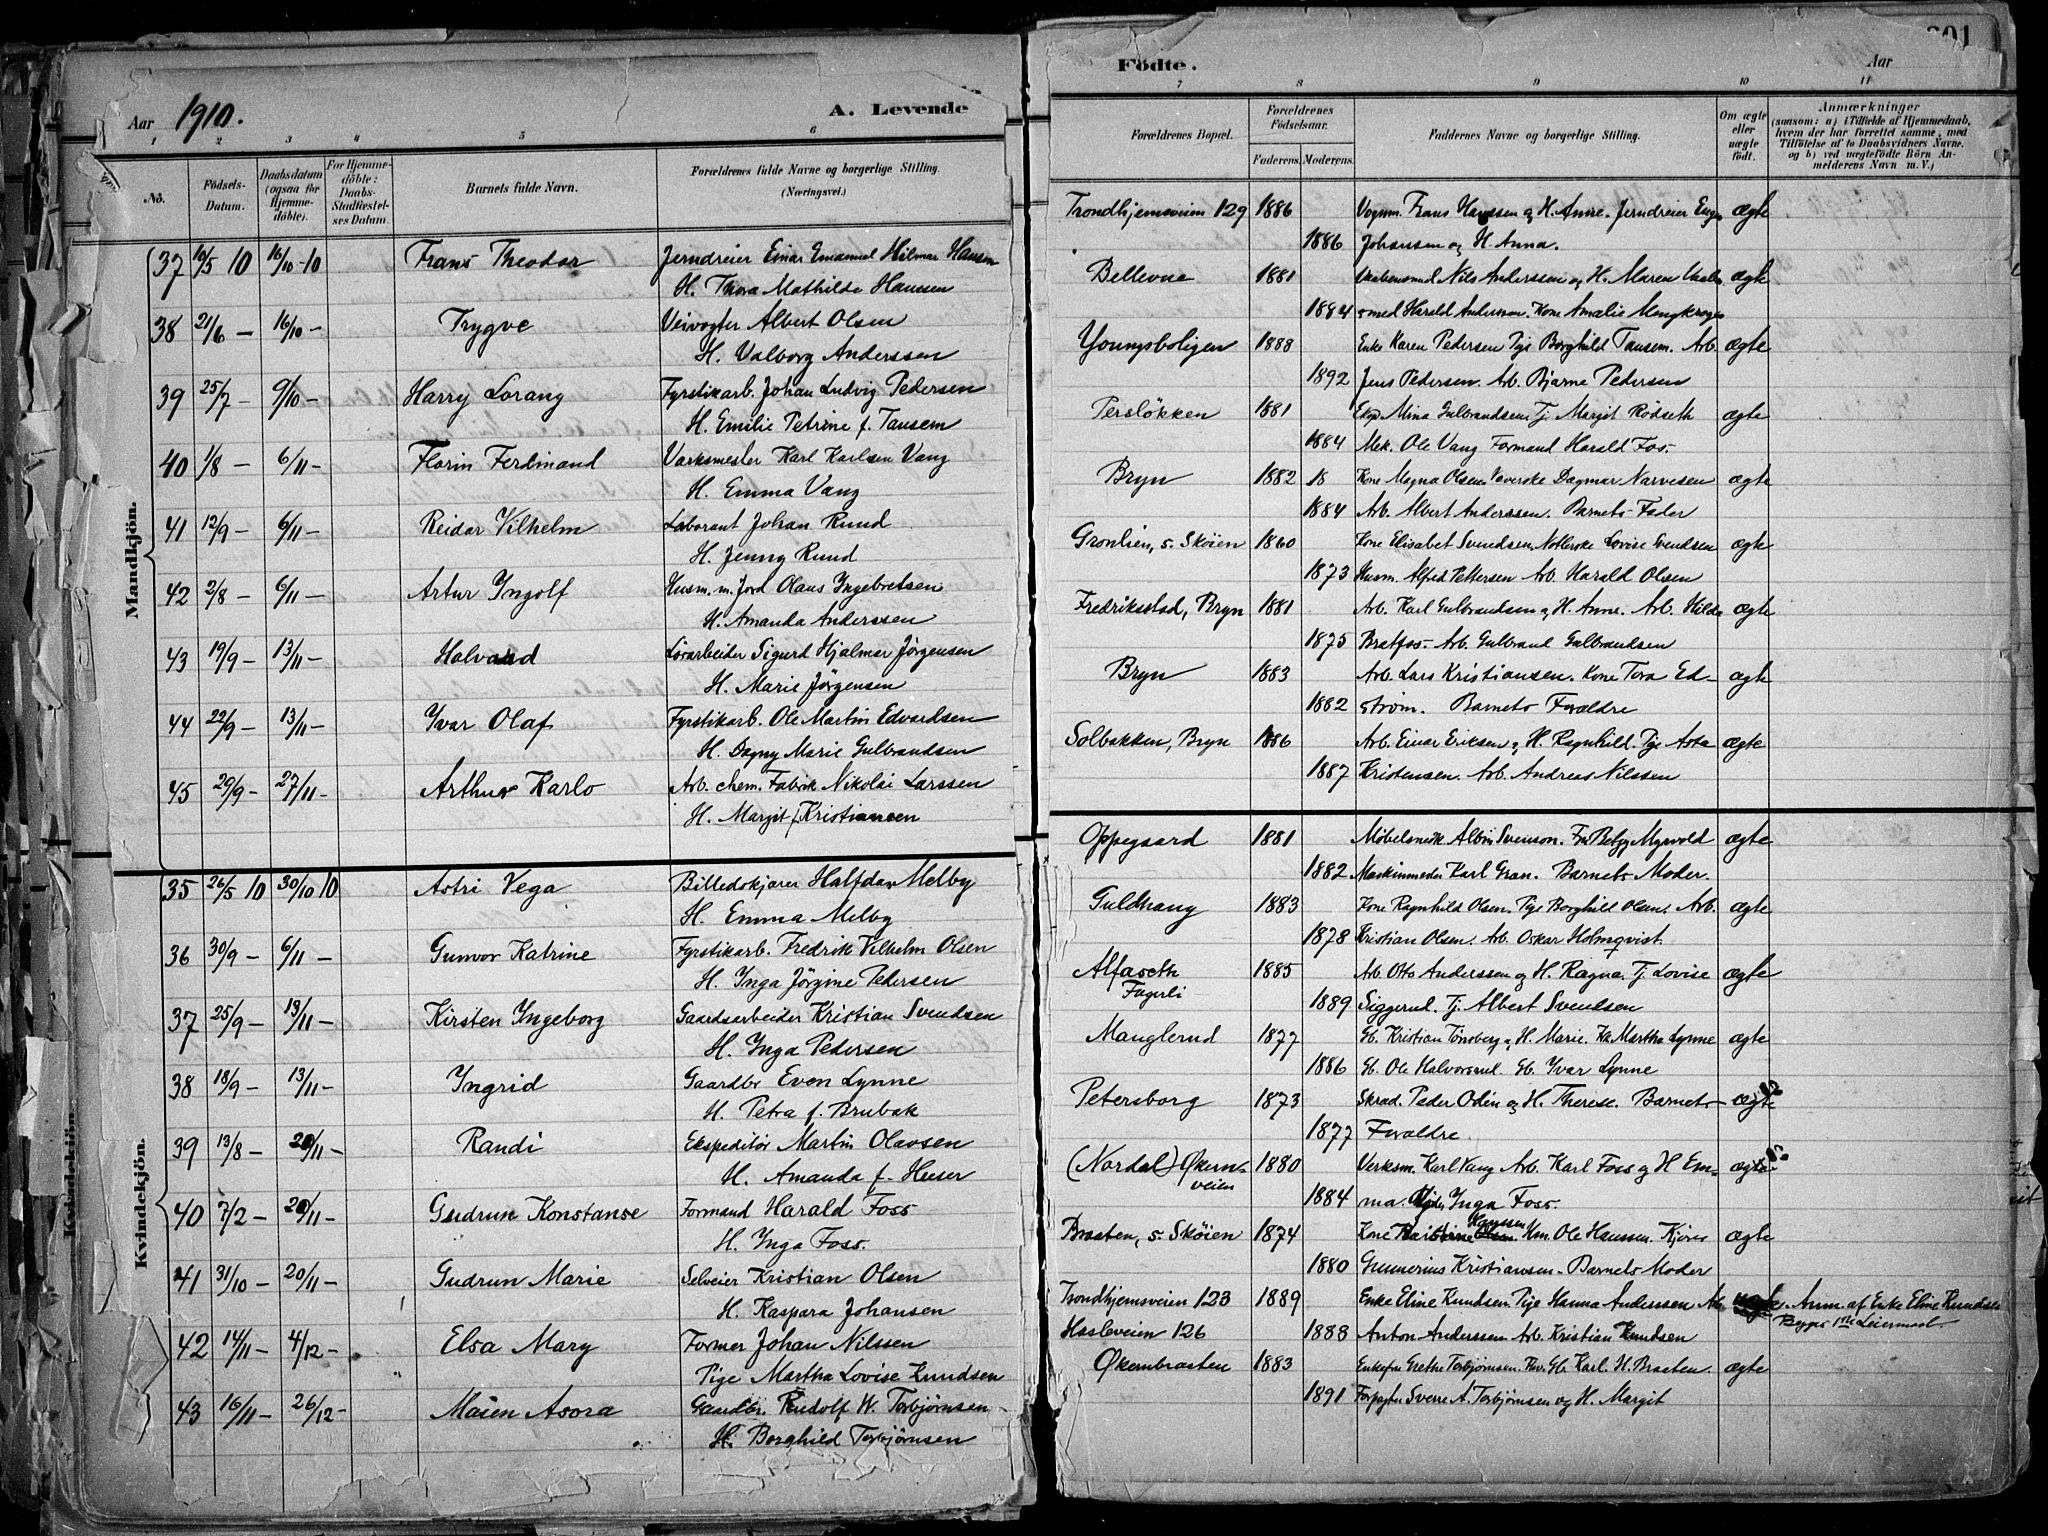 Aar 1910. A. Levende
1 2 3 4 5 6
No. Födsels-Datum. Daabsdatum (ogsaa for Hjemmedöbte). For Hjemmedöbte: Daabs-Stadfæstelses Datum. Barnets fulde Navn. Forældrenes fulde Navne og borgerlige Stilling. (Næringsvei.)
Mandkjön.
37 10/5 10 16/10-10 Frans Theodor Jerndreier Einar Emanuel Hilmar Hansen
H. Thora Mathilde Hansen
38 21/6 – 16/10– Trygve Veivogter Albert Olsen
H. Valborg Anderssen
39 25/7 – 9/10– Harry Lorang Fyrstikarb. Johan Ludvig Pedersen
H. Emilie Petrine f. Tansem
40 1/8 – 6/11– Florin Ferdinand Værksmester Karl Karlsen Vang
H. Emma Vang
41 12/9 – 6/11– Reidar Vilhelm Laborant Johan Rund
H. Jenny Rund
42 2/8 – 6/11– Artur Ingolf Husm. m. Jord Olaus Ingebretsen
H. Amanda Anderssen
43 19/9 – 13/11– Halvard Sigurd Hjalmar Jørgensen
H. Marie Jørgensen
44 22/9 – 13/11– Yvar Olaf Fyrstikarb. Ole Martin Edvardsen
H. Dagny Marie Gulbrandsen
45 29/9 – 27/11– Arthur Karlo Arb. chem. Fabrik Nikolai Larssen
H. Margit f. Kristiansen
Kvindekjön.
Kvindekjön.
35 26/5 10 30/10 10 Astri Vega Billedskjærer Halfdan Melby
H. Emma Melby
36 30/9 – 6/11 – Gunvor Katrine Fyrstikarb. Fredrik Vilhelm Olsen
H. Inga Jörgine Pedersen
37 25/9 – 13/11– Kirsten Ingeborg Gaardsarbeider Kristian Svendsen
H. Inga Pedersen
38 18/9 – 13/11– Ingrid Gaardbr Even Lynne
H. Petra f. Brubak
39 13/8 – 20/11– Randi Ekspeditör Martin Olavsen
H. Amanda f. Huser
40 7/2 – 20/11– Gudrun Konstanse Formand Harald Foss
H. Inga Foss.
41 31/10 – 20/11– Gudrun Marie Selveier Kristian Olsen
H. Kaspara Johansen
42 14/11– 4/12– Elsa Mary Former Johan Nilssen
Pige Martha Lovise Knudsen
43 16/11– 26/12– Maien Asora Gaardbr. Rudolf W. Torbjørnsen
H. Borghild Torbjørnsen
Födte. Aar 301
7 8 9 10 11
Forældrenes Bopæl. Forældrenes Födselsaar. Faderens. Moderens. Faddernes Navne og borgerlige Stilling. Om ægte eller uægte födt. Anmærkninger (saasom: a) i Tilfælde af Hjemmedaab, hvem der har forrettet samme, med Tilföielse af to Daabsvidners Navne. og b) ved uægtefödte Börn Anmelderens Navn m. V.)
Trondhjemsveien 129 1886 Vognm. Frans Hanssen og H. Anne. Jerndreier ægte
1886 Johanssen og H. Anna.
Bellevue 1881 Nils Anderssen og H. Maren ægte
1884 smed Harald Anderssen. Kone Amalie
Youngsboligen 1888 Enke Karen Pedersen Pige Borghild Tansem. Arb. ægte
1892 Jens Pedersen. Arb. Bjarne Pedersen
Persløkken 1881 Eksp Mina Gulbrandsen Tj. Margit Rødseth ægte
1884 Mek. Ole Vang Formand Harald Fos.
Bryn 1882 18 Kone Magna Olsen Væverske Dagmar Narvesen ægte
1884 Arb. Albert Anderssen. Barnets Fader
Grønlien, s. Skøien 1860 Kone Elisabet Svendsen Lovise Svendsen ægte
1873 Husm. Alfred Pettersen Arb. Harald Olsen
Fredriksstad, Bryn 1881 Arb. Karl Gulbrandsen og H. Anne. Arb. Hilda ægte
1875 Bratfos. Arb. Gulbrand Gulbrandsen
Bryn 1883 Arb. Lars Kristiansen. Kone Tora Ed- ægte
1882 strøm. Barnets Forældre
Solbakken, Bryn 1886 Arb. Einar Eriksen og H. Ragnhild. Pige Asta ægte
1887 Kristensen. Arb. Andreas Nilssen
Oppegaard 1881 Møbelsnedk Albin Svenson. Frk Betzy Myrvold ægte
1882 Karl Gran. Barnets Moder.
Guldhaug 1883 Kone Ragnhild Olsen. Pige Borghild Olsen. Arb. ægte
1878 Kristian Olsen. Arb. Oskar Holmqvist.
Alfaseth 1885 Arb. Otto Anderssen og H. Ragna. Tj. Lovise ægte
Fagerli 1889 Siggerud. Tj. Albert Svendsen
Manglerud 1877 Gb. Kristian Tønsberg og H. Marie. Martha Lynne ægte
1886 Gb. Ole Halvorsrud. Gb. Yvar Lynne
Petersborg 1873 Skræd. Peder Odin og H. Therese. Barnets ægte
1877 Forældre.
(Nordal) Økern- 1880 Verksm. Karl Vang Arb. Karl Foss og H Em- ægte
veien 1884 ma. Inga Foss.
Braaten, s. Skøien 1874 Kone Hanssen Hm. Ole Hanssen. Kjører ægte
1880 Gunnerius Kristiansen. Barnets Moder
Trondhjemsveien 123 1889 Enke Eline Knudsen. Pige Hanna Anderssen Arb Anm. af Enke Eline Knudsen
Hasleveien 126 1888 Anton Anderssen Arb. Kristian Knudsen Begges 1ste Leiermaal.
Økernbraaten 1883 Enkefru Grethe Torbjørnsen. Gb Karl. H. Braaten. ægte
1891 Forpagter Sverre A. Torbjørnsen og H. Margit